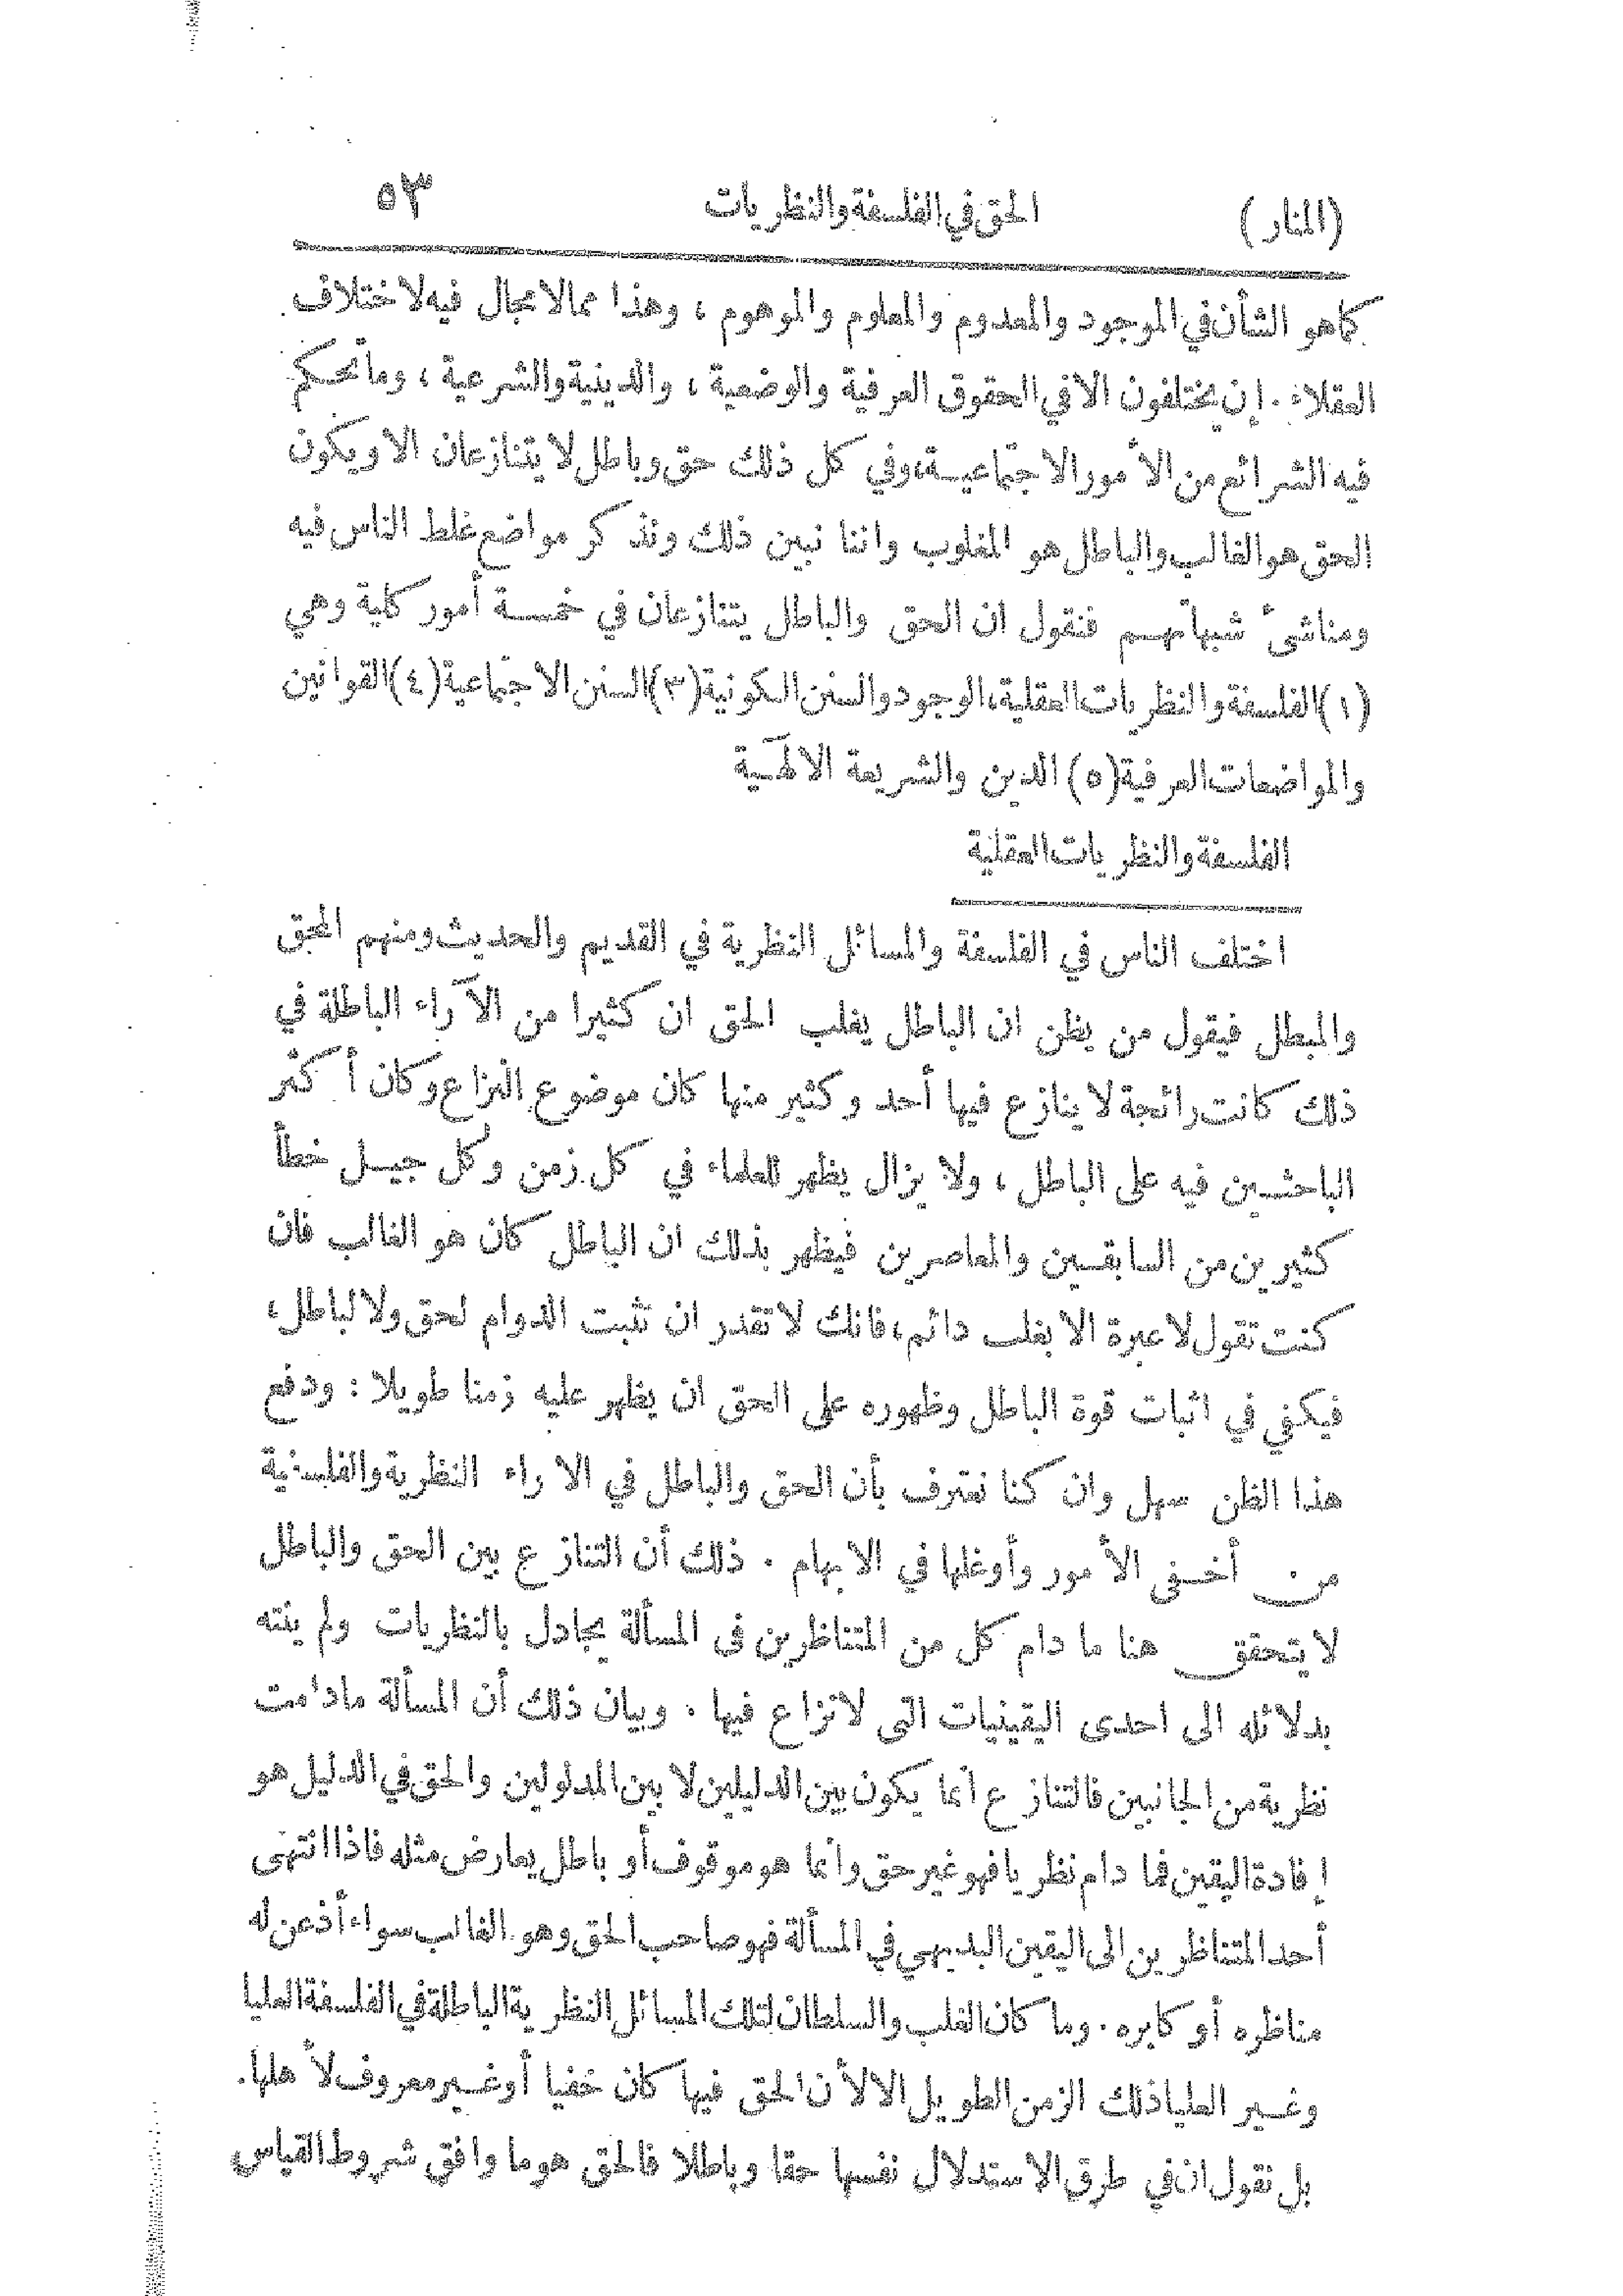 (المنار) الحق في الفلسفة والنظريات ٥٣
كما هو الشأن في الموجود والمعدوم والمعلوم والموهوم ، وهذا مما لا مجال فيه لاختلاف
العقلاء . إن يختلفون الا في الحقوق العرفية والوضعية ، والدينية والشرعية ، وما تحكم
فيه الشرائع من الأمور الاجتماعية، وفي كل ذلك حق وباطل لا يتنازعان الا ويكون
الحق هو الغالب والباطل هو المغلوب واننا نبين ذلك ونذكر مواضع غلط الناس فيه
ومناشئ شبهاتهم فنقول ان الحق والباطل يتنازعان في خمسة أمور كلية وهي
(١) الفلسفة والنظريات العقلية، الوجود والسنن الكونية (٣) السنن الاجتماعية (٤) القوانين
والمواضعات العرفية (٥) الدين والشريعة الالهية
الفلسفة والنظريات العقلية
اختلف الناس في الفلسفة والمسائل النظرية في القديم والحديث ومنهم المحق
والمبطل فيقول من يظن ان الباطل يغلب الحق ان كثيرا من الآراء الباطلة في
ذلك كانت رائجة لا ينازع فيها أحد وكثير منها كان موضوع النزاع وكان أكثر
الباحثين فيه على الباطل ، ولا يزال يظهر للعلماء في كل زمن وكل جيل خطأ
كثيرين من السابقين والمعاصرين فيظهر بذلك ان الباطل كان هو الغالب فان
كنت تقول لا عبرة الا بغلب دائم، فانك لا تقدر ان تثبت الدوام لحق ولا لباطل،
فيكفي في اثبات قوة الباطل وظهوره على الحق ان يظهر عليه زمنا طويلا : ودفع
هذا الظن سهل وان كنا نعترف بأن الحق والباطل في الآراء النظرية والفلسفية
من أخفى الأمور وأوغلها في الابهام . ذلك أن التنازع بين الحق والباطل
لا يتحقق هنا ما دام كل من المتناظرين في المسألة يجادل بالنظريات ولم ينته
بدلائله الى احدى اليقينيات التي لا نزاع فيها . وبيان ذلك أن المسألة مادامت
نظرية من الجانبين فالتنازع انما يكون بين الدليلين لا بين المدلولين والحق في الدليل هو
إفادة اليقين فما دام نظريا فهو غير حق وانما هو موقوف أو باطل يعارض مثله فاذا انتهى
أحد المتناظرين الى اليقين البديهي في المسألة فهو صاحب الحق وهو الغالب سواء أذعن له
مناظره أو كابره . وما كان الغلب والسلطان لتلك المسائل النظرية الباطلة في الفلسفة العليا
وغير العليا ذلك الزمن الطويل الا لأن الحق فيها كان خفيا أو غير معروف لأهلها .
بل نقول ان في طرق الاستدلال نفسها حقا وباطلا فالحق هو ما وافق شروط القياس